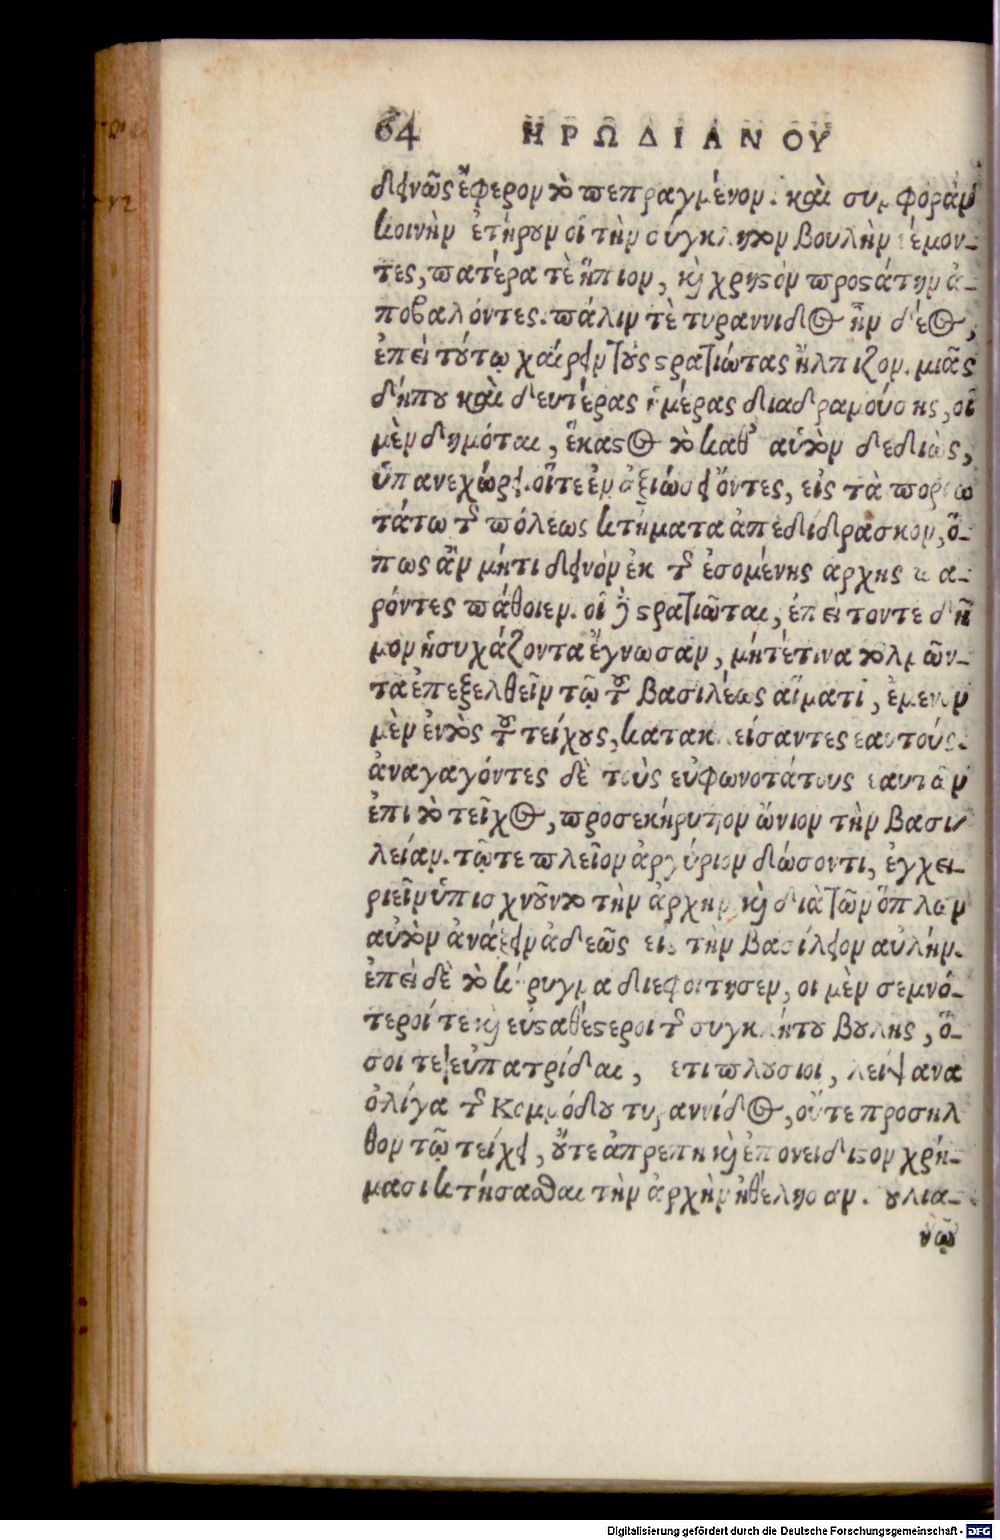 64 ΗΡΩΔΙΑΝΟΥ
δεινῶς ἔφερον τὸ πεπραγμένον. καὶ συμφορὰν
κοινὴν ἐτήρουν οἱ τὴν σύγκλητον βουλὴν νέμον-
τες, πατέρα τὲ ἤπιον, καὶ χρηστὸν προστάτην ἀ-
ποβαλόντες. πάλιν τὲ τυραννίδος ἦν δέος,
ἐπεὶ τούτῳ χαίρειν τοὺς στρατιώτας ἤλπιζον. μιᾶς
δήπου καὶ δευτέρας ἡμέρας διαδραμούσης, οἱ
μὲν δημόται, ἕκαστος τὸ καθ' αὑτὸν δεδιὼς,
ὑπανεχώρει. οἵτε ἐν ἀξιώσει ὄντες, εἰς τὰ πορρω
τάτω τῆς πόλεως κτήματα ἀπεδίδρασκον, ὅ-
πως ἂν μήτι δεινὸν ἐκ τῆς ἐσομένης αρχης πα-
ρόντες πάθοιεν. οἱ δὲ στρατιῶται, ἐπεὶ τοντε δῆ
μον ἡσυχάζοντα ἔγνωσαν, μήτέ τινα τολμῶν-
τα ἐπεξελθεῖν τῷ τοῦ βασιλέως αἵματι, ἔμενον
μὲν ἐντὸς τοῦ τείχους, κατακλείσαντες εαυτούς.
ἀναγαγόντες δὲ τοὺς εὐφωνοτάτους εαυτῶν
ἐπι τὸ τεῖχος, προσεκήρυττον ὤνιον τὴν βασι
λείαν. τῷτε πλεῖον ἀργύριον δώσοντι, ἐγχει-
ριεῖν ὑπισχνοῦντο τὴν ἀρχὴν, καὶ διὰ τῶν ὅπλων
αὐτὸν ἀνάξειν ἀδεῶς εις τὴν βασίλειον αὐλήν.
ἐπεὶ δὲ τὸ κήρυγμα διεφοίτησεν, οι μὲν σεμνό-
τεροί τε καὶ εὐσταθέστεροι τῆς συγκλήτου βουλης, ὅ-
σοι τε εὐπατρίδαι, ετι πλουσιοι, λείψανα
ὀλίγα τῆς Κομμόδου τυραννίδος, οὔτε προσηλ
θον τῷ τείχει, οὔτε ἀπρεπη καὶ ἐπονειδιστον χρή-
μασι κτήσασθαι τὴν ἀρχὴν ἠθέλησαν. ουλια-
νῷ
Digitalisierung gefördert durch die Deutsche Forschungsgemeinschaft - DFG